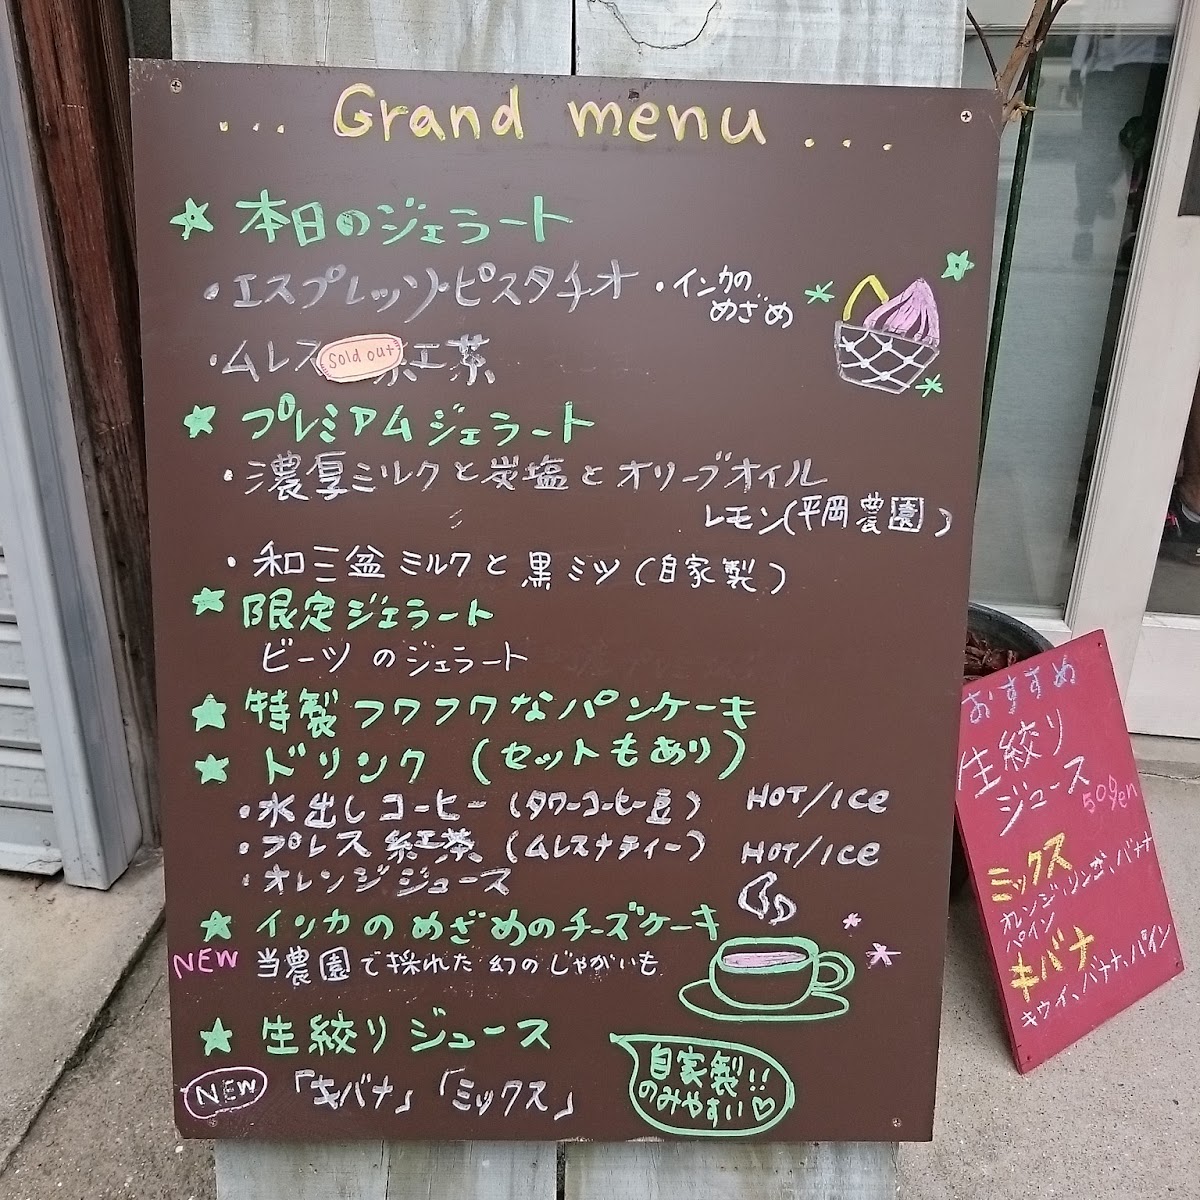 ... Grand menu ...
★ 本日のジェラート
・エスプレッソ・ピスタチオ ・インカの
めざめ
・ムレス 紅茶
sold out
★ プレミアムジェラート
・濃厚ミルクと炭塩とオリーブオイル
レモン(平岡農園)
・和三盆ミルクと黒ミツ(自家製)
★ 限定ジェラート
ビーツのジェラート
★ 特製フワフワなパンケーキ
★ ドリンク (セットもあり)
・水出しコーヒー (タワーコーヒー豆) HOT/ICE
・プレス紅茶 (ムレスナティー) HOT/ICE
・オレンジジュース
★ インカのめざめのチーズケーキ
NEW 当農園で採れた幻のじゃがいも
★ 生絞りジュース
NEW 「キバナ」「ミックス」
自家製!!
のみやすい♡
おすすめ
生絞り
ジュース
500yen
ミックス
オレンジ、リンゴ、バナナ
パイン
キバナ
キウイ、バナナ、パイン